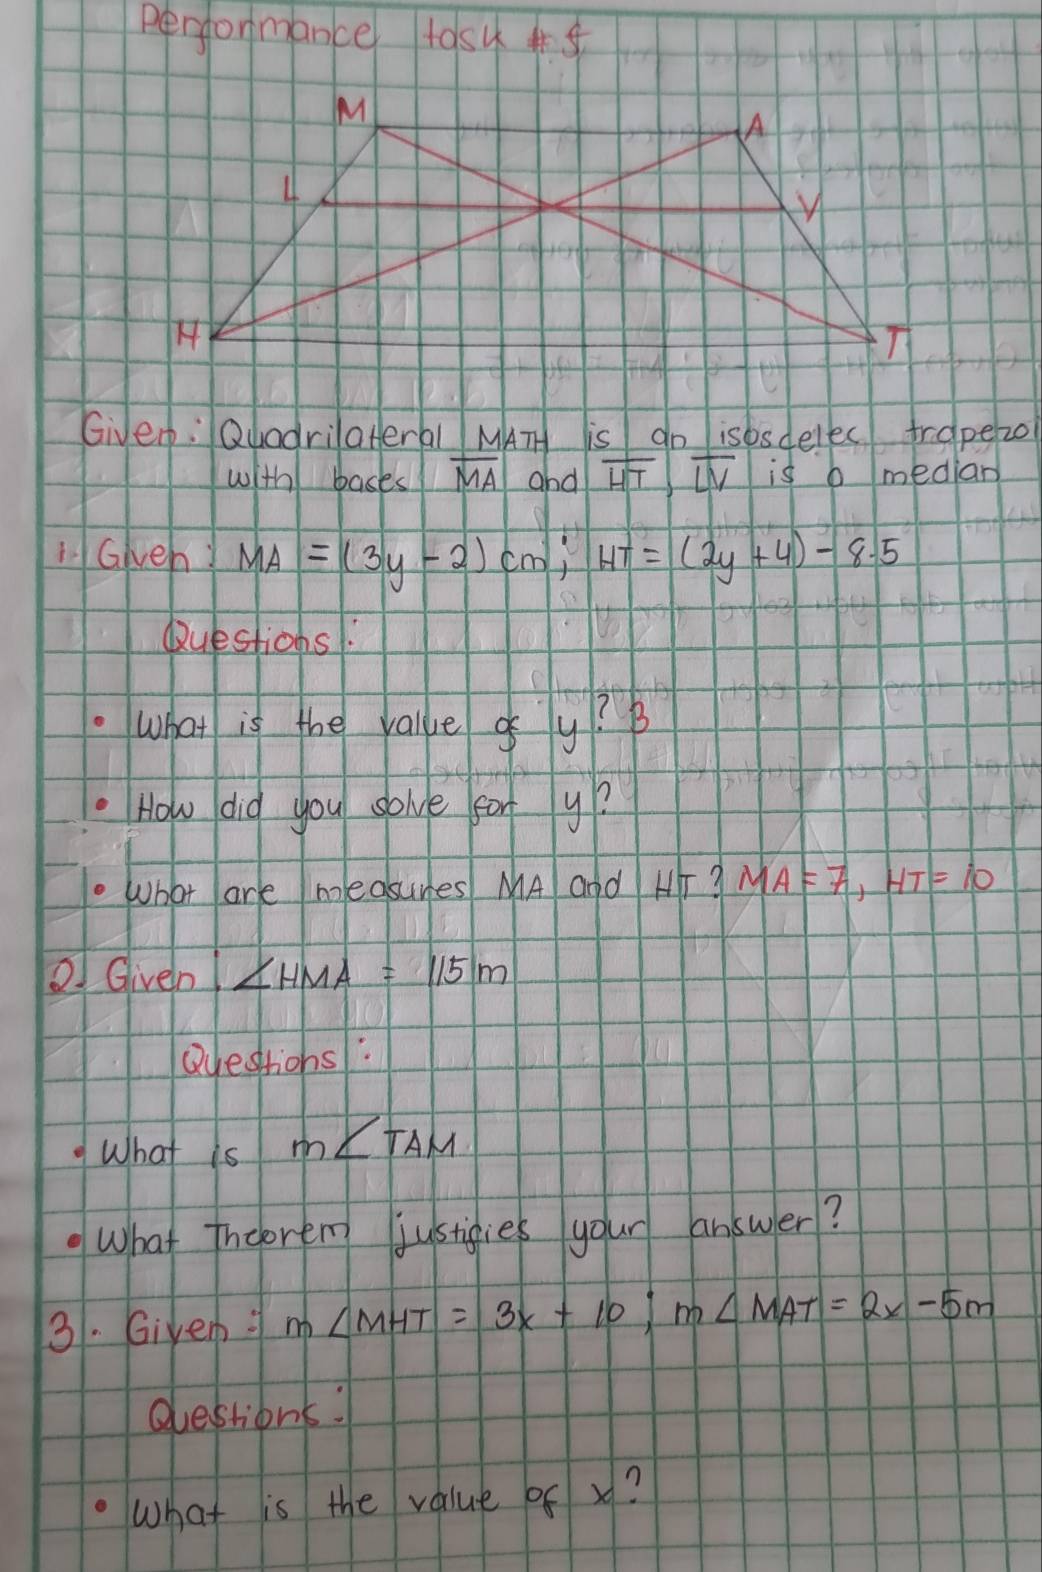 Performance task #5
M
A
L
V
H
T
Given: Quadrilateral MATH is an isosceles trapezoi
with bases MA and HT, LV is a median
1. Given: MA = (3y - 2) cm; HT = (2y + 4) - 8.5
Questions:
• What is the value of y? 3
• How did you solve for y?
• What are measures MA and HT? MA = 7, HT = 10
2. Given: ∠HMA = 115 m
Questions:
• What is m∠TAM
• What Theorem justifies your answer?
3. Given: m∠MHT = 3x + 10; m∠MAT = 2x - 5m
Questions:
• What is the value of x?